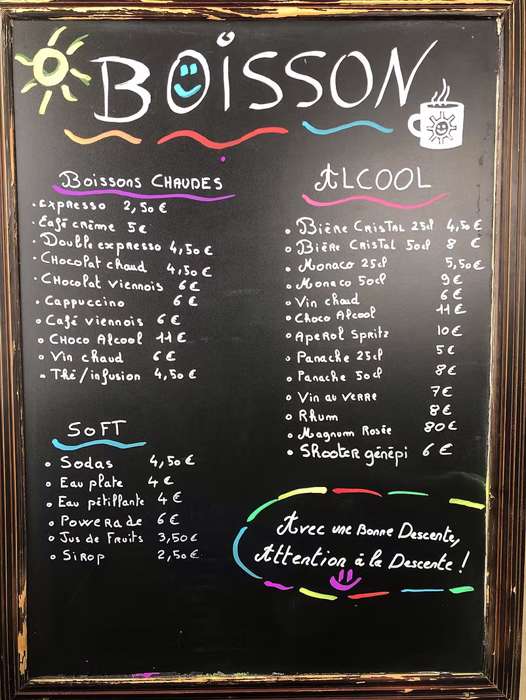 BOISSON
BOISSONS CHAUDES
• Expresso 2,50 €
• Café crème 5 €
• Double expresso 4,50 €
• Chocolat chaud 4,50 €
• Chocolat viennois 6 €
• Cappuccino 6 €
• Café viennois 6 €
• Choco Alcool 11 €
• Vin chaud 6 €
• Thé/infusion 4,50 €
SOFT
• Sodas 4,50 €
• Eau plate 4 €
• Eau pétillante 4 €
• Powerade 6 €
• Jus de Fruits 3,50 €
• Sirop 2,50 €
ALCOOL
• Bière Cristal 25cl 4,50 €
• Bière Cristal 50cl 8 €
• Monaco 25cl 5,50 €
• Monaco 50cl 9 €
• Vin chaud 6 €
• Choco Alcool 11 €
• Aperol Spritz 10 €
• Panache 25cl 5 €
• Panache 50cl 8 €
• Vin au verre 7 €
• Rhum 8 €
• Magnum Rosée 80 €
• Shooter génépi 6 €
Avec une Bonne Descente,
Attention à la Descente !